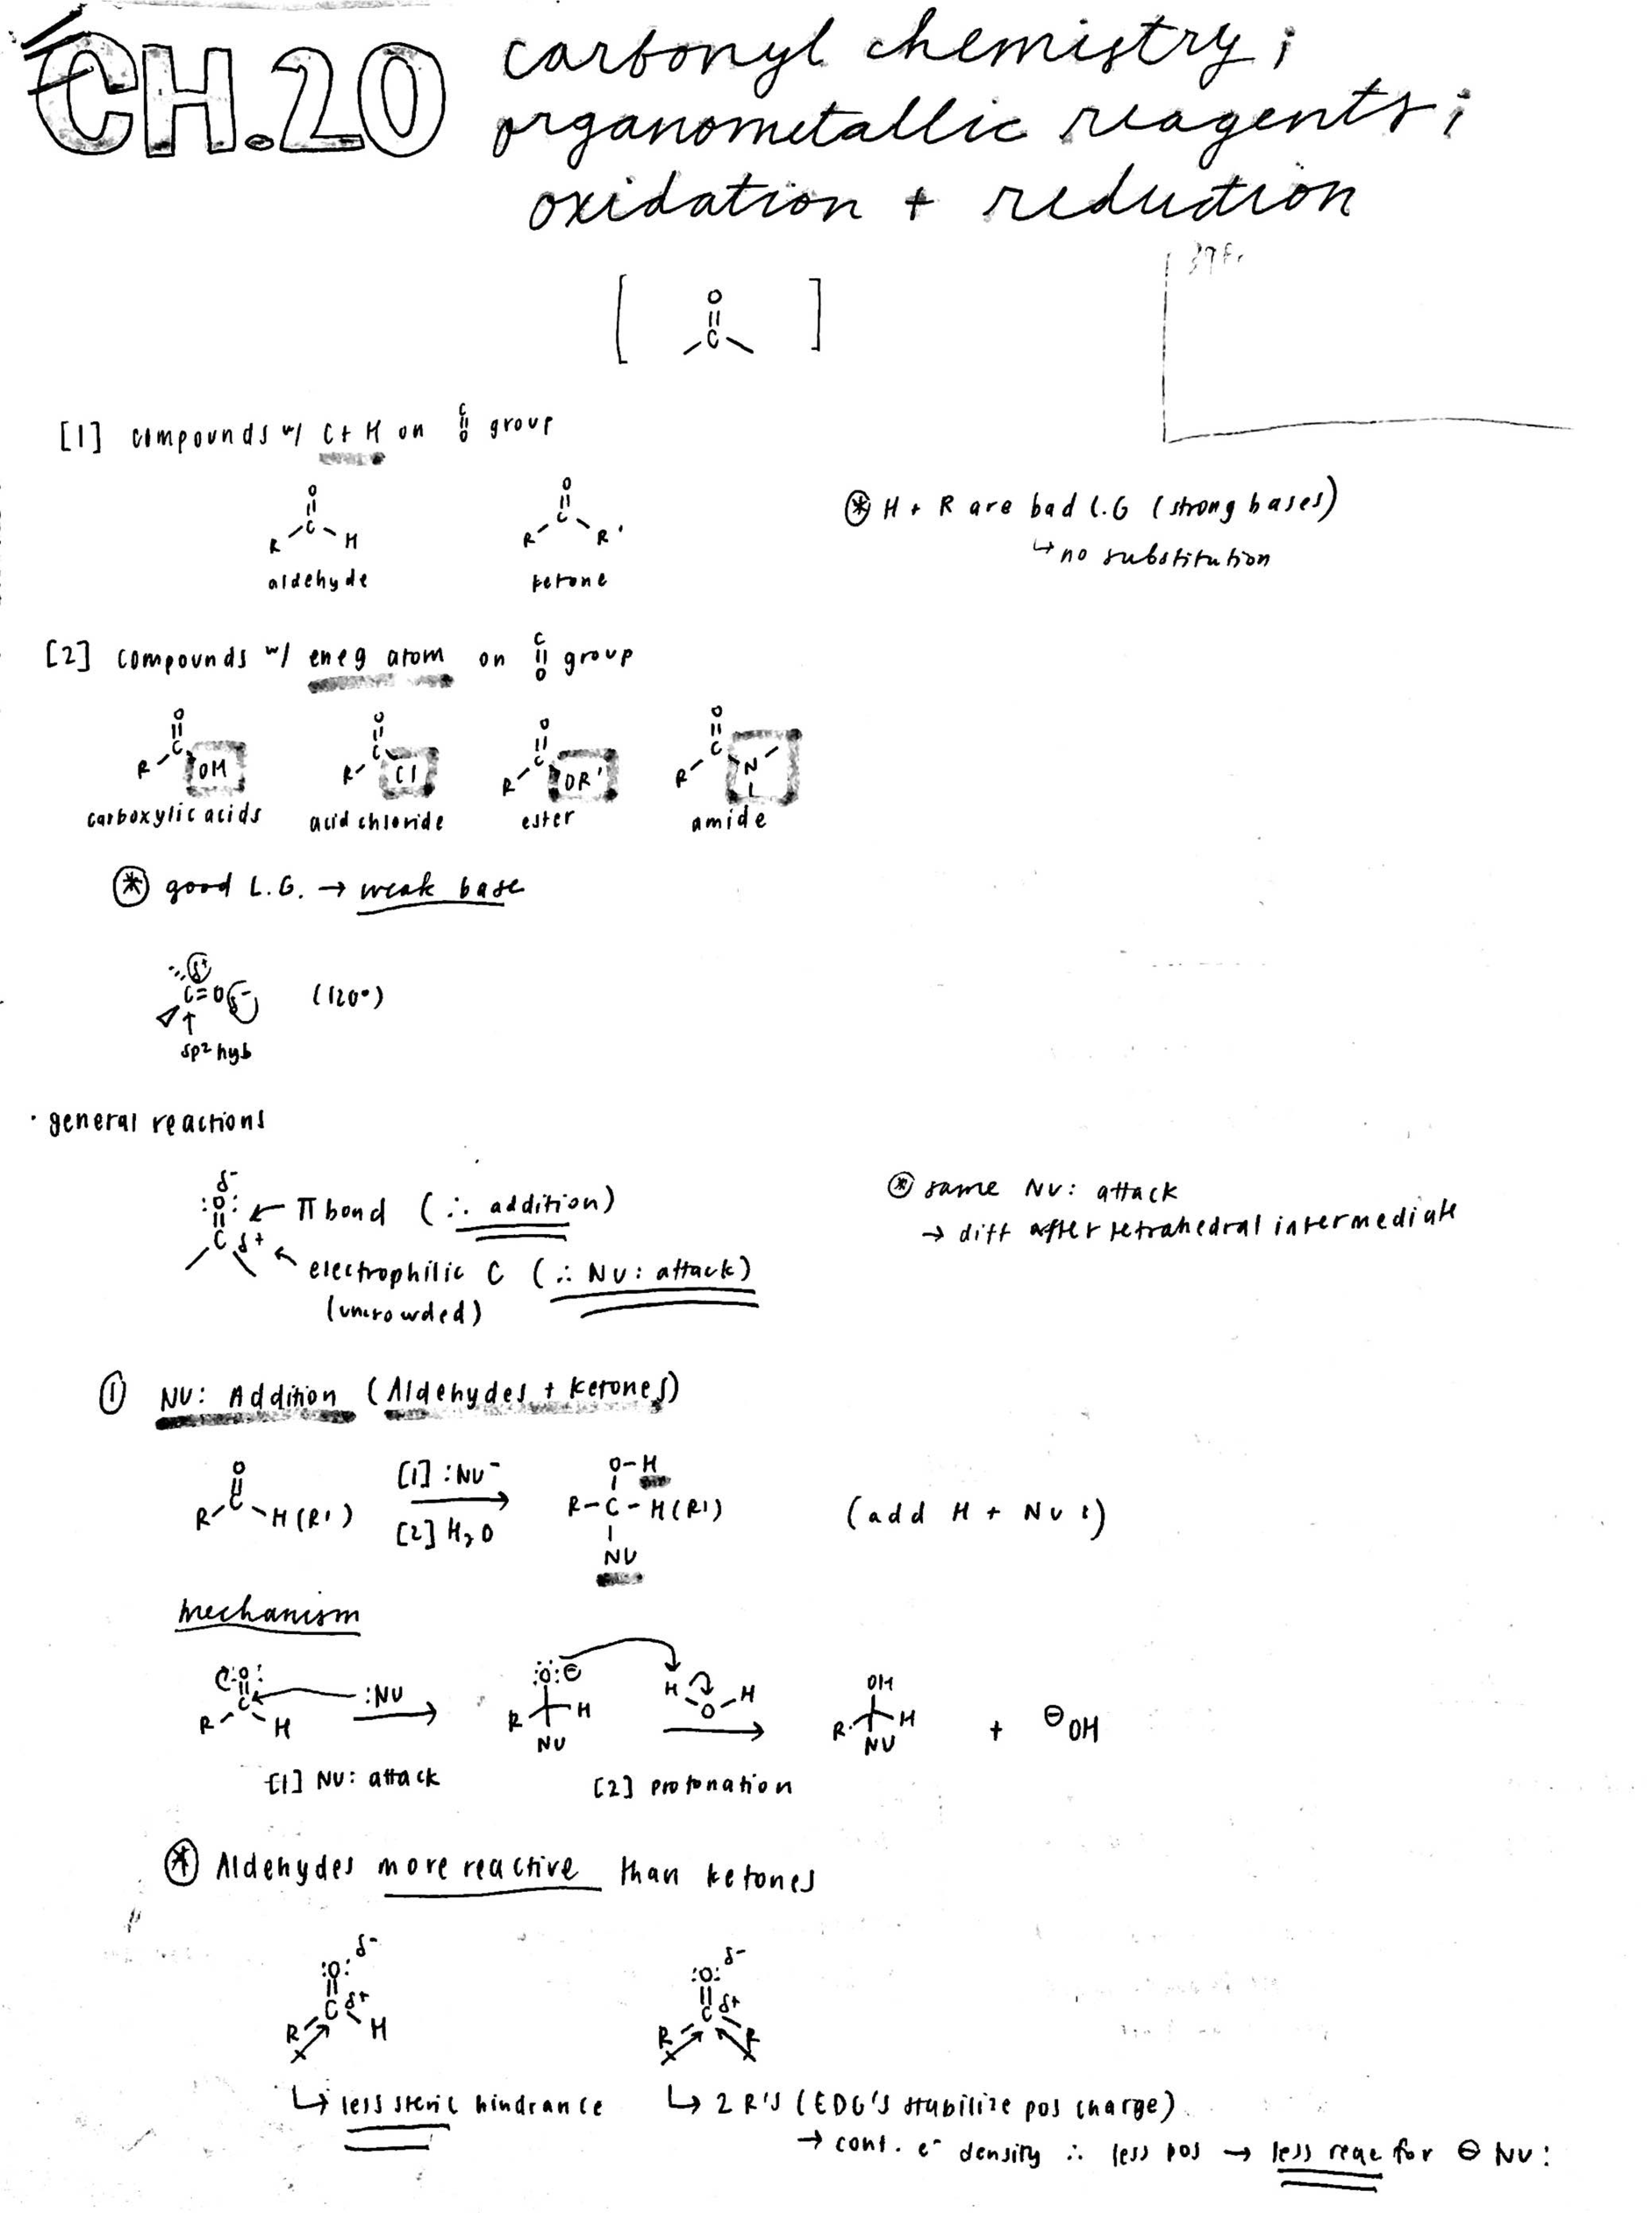 CH.20 carbonyl chemistry;
organometallic reagents;
oxidation + reduction
[ O
C ]
[1] compounds w/ C + H on C=O group
O
R C H
aldehyde
O
R C R'
ketone
* H + R are bad L.G (strong bases)
↳ no substitution
[2] compounds w/ eneg atom on C=O group
O
R C OH
carboxylic acids
O
R C Cl
acid chloride
O
R C OR'
ester
O
R C N
amide
* good L.G. → weak base
δ+
C=O δ- (120°)
sp² hyb
· general reactions
δ-
:O: ← π bond (∴ addition)
C δ+ ← electrophilic C (∴ Nu: attack)
(uncrowded)
* same Nu: attack
→ diff after tetrahedral intermediate
① Nu: Addition (Aldehydes + ketones)
O
R C H(R')
[1] :Nu⁻
[2] H₂O
O-H
R-C-H(R')
Nu
(add H + Nu:)
mechanism
:O:
R C H
:Nu
[1] Nu: attack
:O:⊖
R H
Nu
H O H
[2] protonation
OH
R H
Nu
+ ⊖OH
* Aldehydes more reactive than ketones
δ-
:O:
C δ+
R H
↳ less steric hindrance
δ-
:O:
C δ+
R R
↳ 2 R's (EDG's stabilize pos charge)
→ cont. e⁻ density ∴ less pos → less reac for ⊖ Nu: